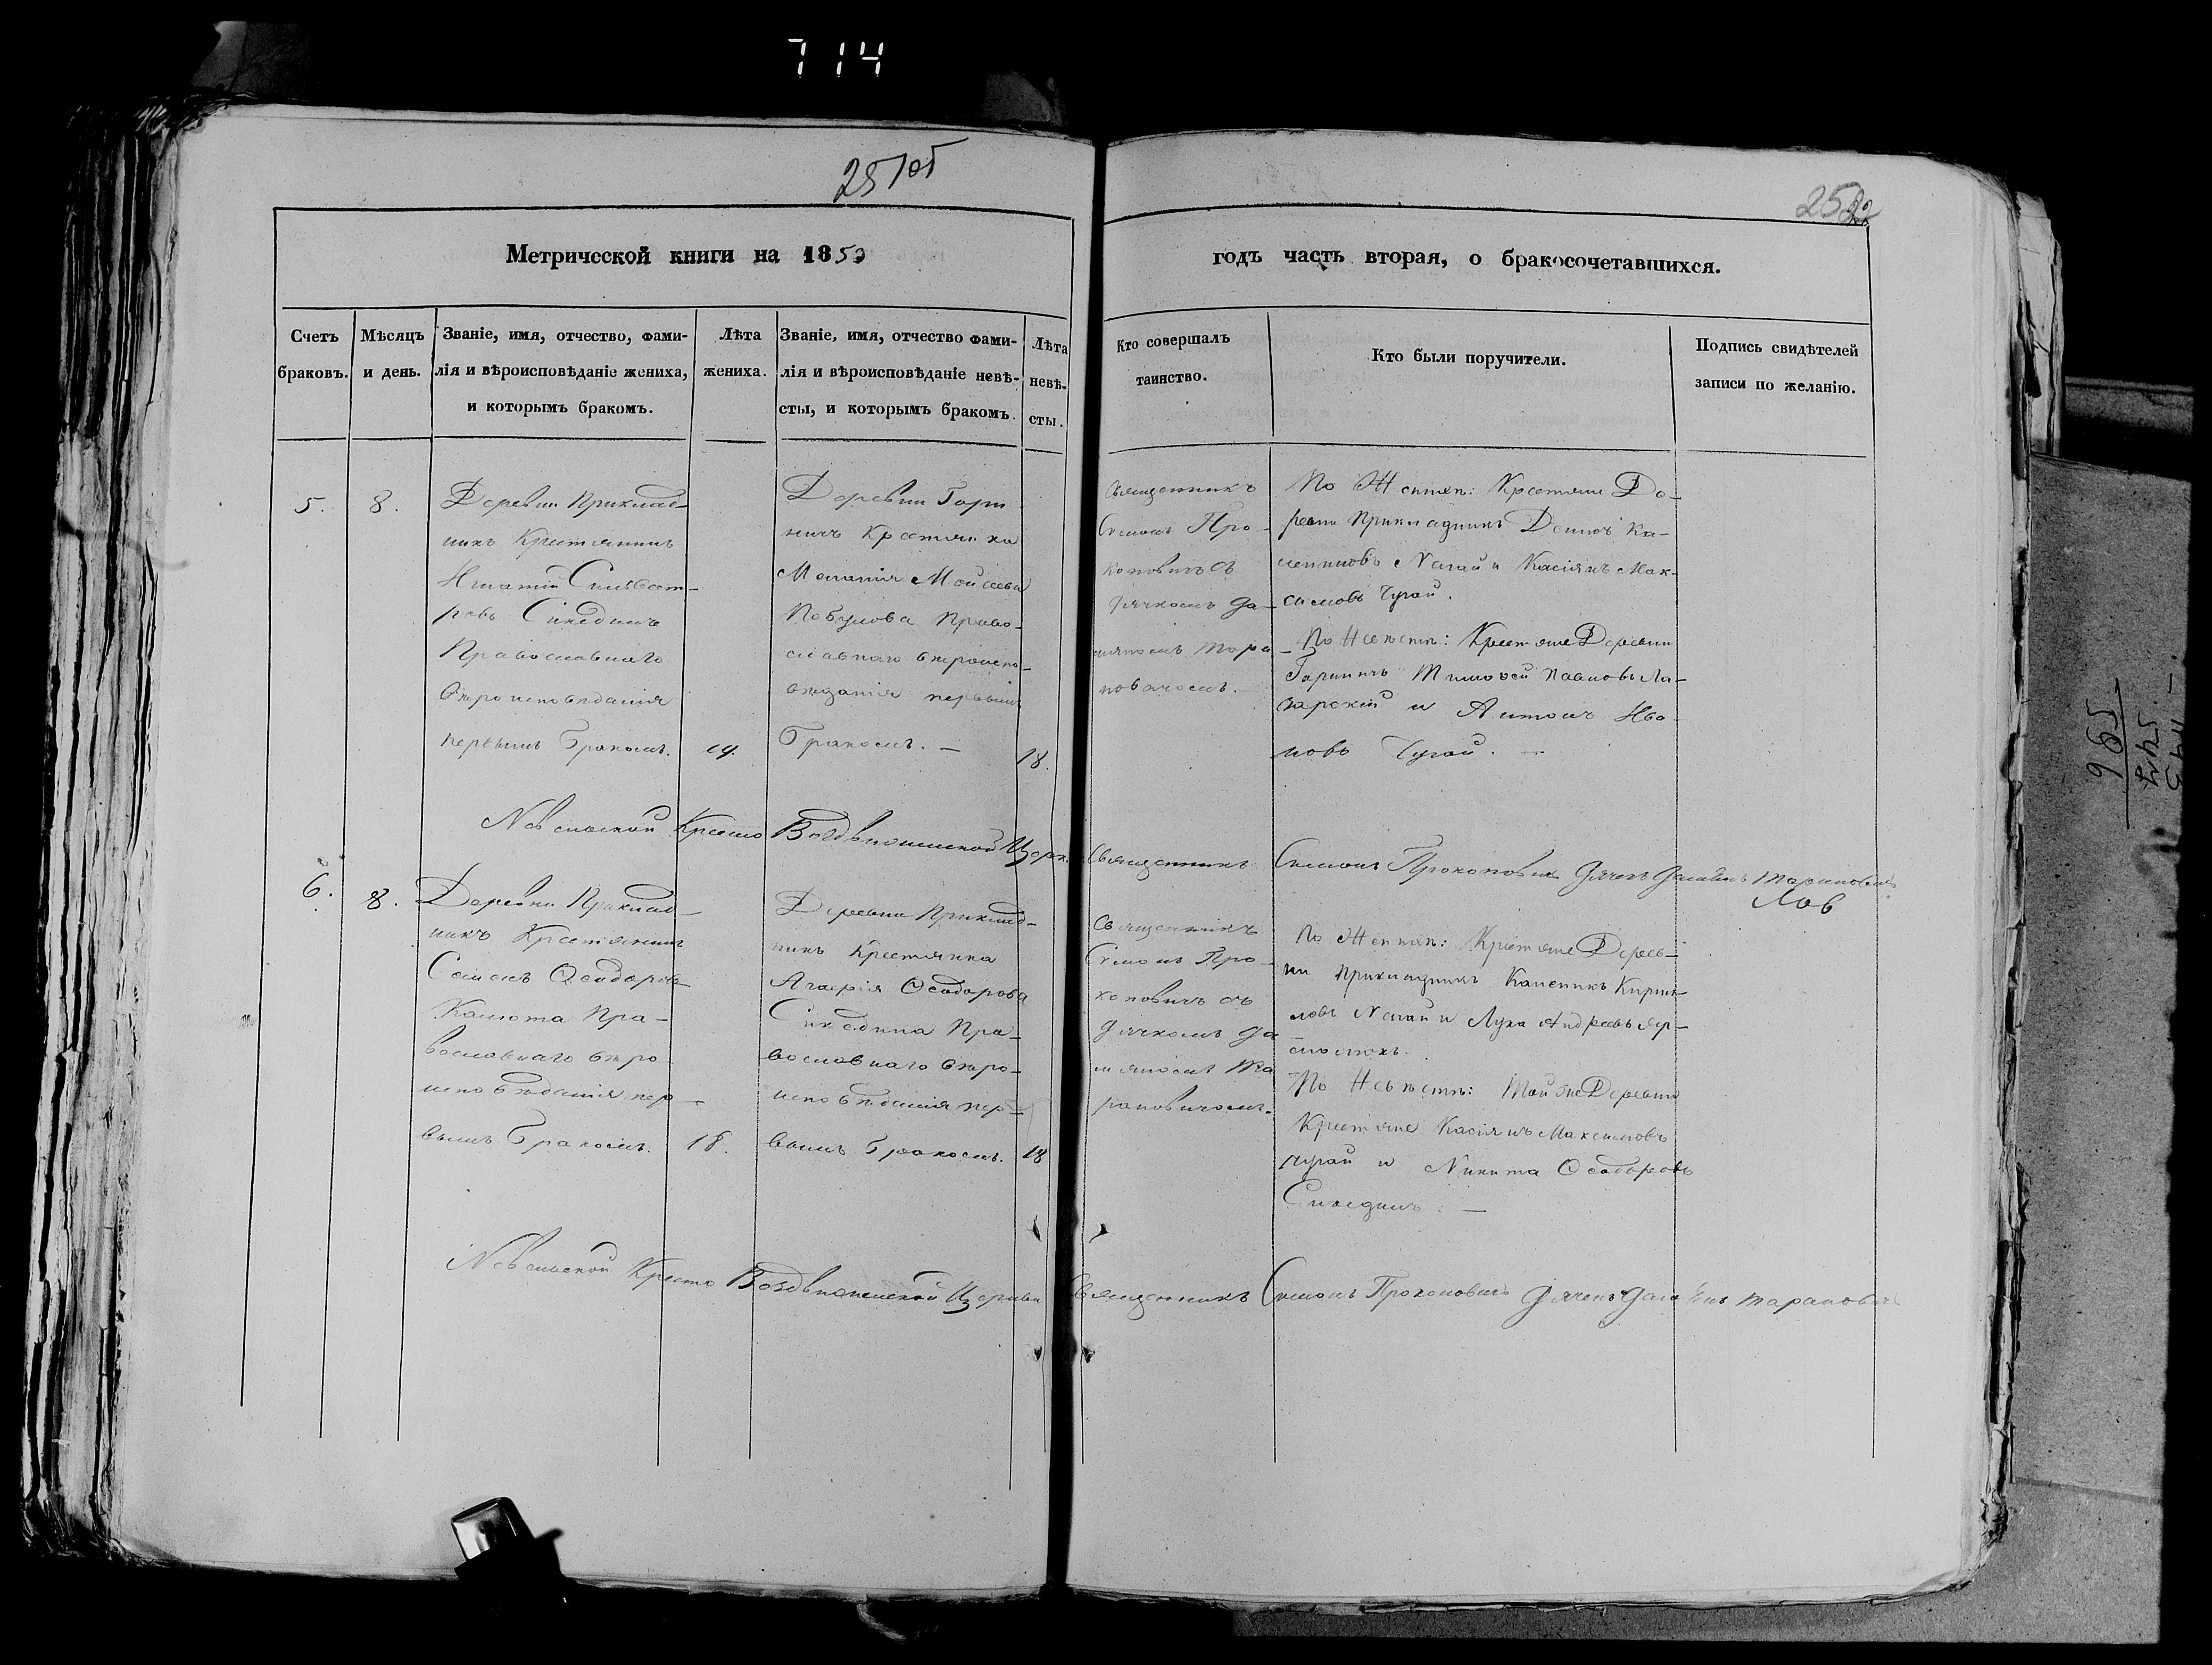 714
25 об
252
Метрической книги на 1850
годъ часть вторая, о бракосочетавшихся.
Счетъ браковъ.
Мѣсяцъ и день.
Званіе, имя, отчество, фами-
лія и вѣроисповѣданіе жениха,
и которымъ бракомъ.
Лѣта жениха.
Званіе, имя, отчество фами-
лія и вѣроисповѣданіе невѣ-
сты, и которымъ бракомъ.
Лѣта невѣ-
сты.
Кто совершалъ
таинство.
Кто были поручители.
Подпись свидѣтелей
записи по желанію.
5.
8.
Деревни Приклад-
никъ Крестянинъ
Игнатій Сильвест-
ровъ Сикединъ
Православнаго
вѣроисповѣданія
первымъ Бракомъ.
19.
Деревни Гори
ничъ Крестянка
Меланія Моисеева
Православнаго вѣроиспо-
вѣданія первымъ
Бракомъ. —
18.
Священникъ
Симонъ Про-
коповичъ съ
дячкомъ Да-
міяномъ Тара-
новичемъ.
По Женихѣ: Крестяне Де-
ревни Прикладникъ
и Касіянъ Мак-
симовъ Чугай.
По Невѣстѣ: Крестяне Деревни
Горничъ Тимофей Павловъ
и Антонъ Ива-
новъ Чугай. —
Невельской Кресто Воздвиженской Церкви Священникъ Симонъ Прокоповичъ Дячекъ Даміянъ Тарановичъ
6.
8.
Деревни Приклад-
никъ Крестянинъ
Семенъ Ѳеодоровъ
Калюта Пра-
вославнаго вѣро
исповѣданія пер-
вымъ Бракомъ.
18.
Деревни Приклад-
никъ Крестянка
Агафія Ѳеодорова
Сикедина Пра-
вославнаго вѣро-
исповѣданія пер-
вымъ Бракомъ.
18
Священникъ
Симонъ Про-
коповичъ съ
дячкомъ Да
міяномъ Та
рановичемъ.
По Женихѣ: Крестяне Дерев-
ни Прикладникъ Кирил-
ловъ и Лука Андреевъ Яр-
молюкъ.
По Невѣстѣ: Той же Деревни
Крестяне Касіянъ Максимовъ
Чугай и Никита Ѳеодоровъ
Сикединъ. —
Невельской Кресто Воздвиженской Церкви Священникъ Симонъ Прокоповичъ Дячекъ Даміянъ Тарановичъ
965